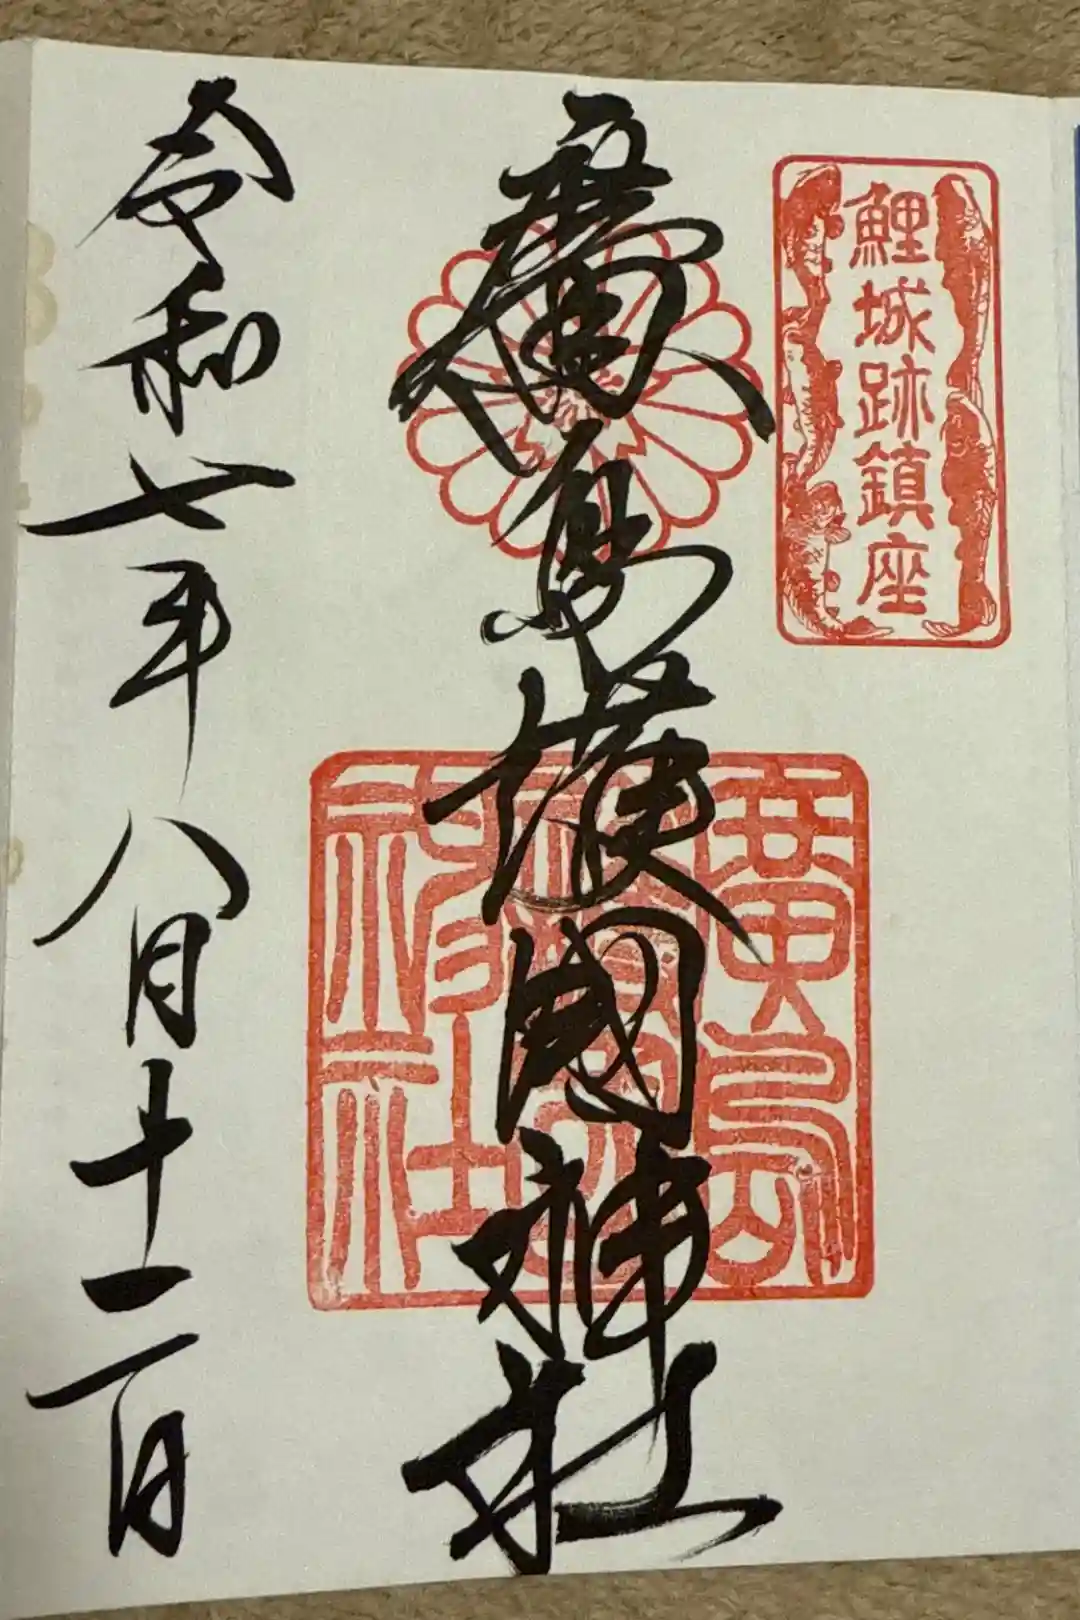 鯉城跡鎮座
廣島護國神社
令和七年八月十二日
廣島
神社